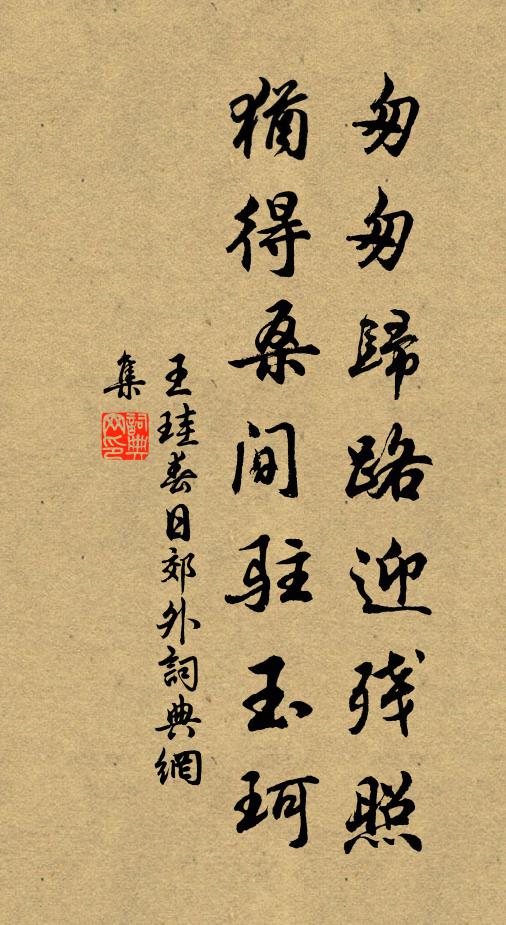 匆匆歸路迎残照
猶得桑間駐玉珂
王珪春日郊外詞典網
集
詞典網印